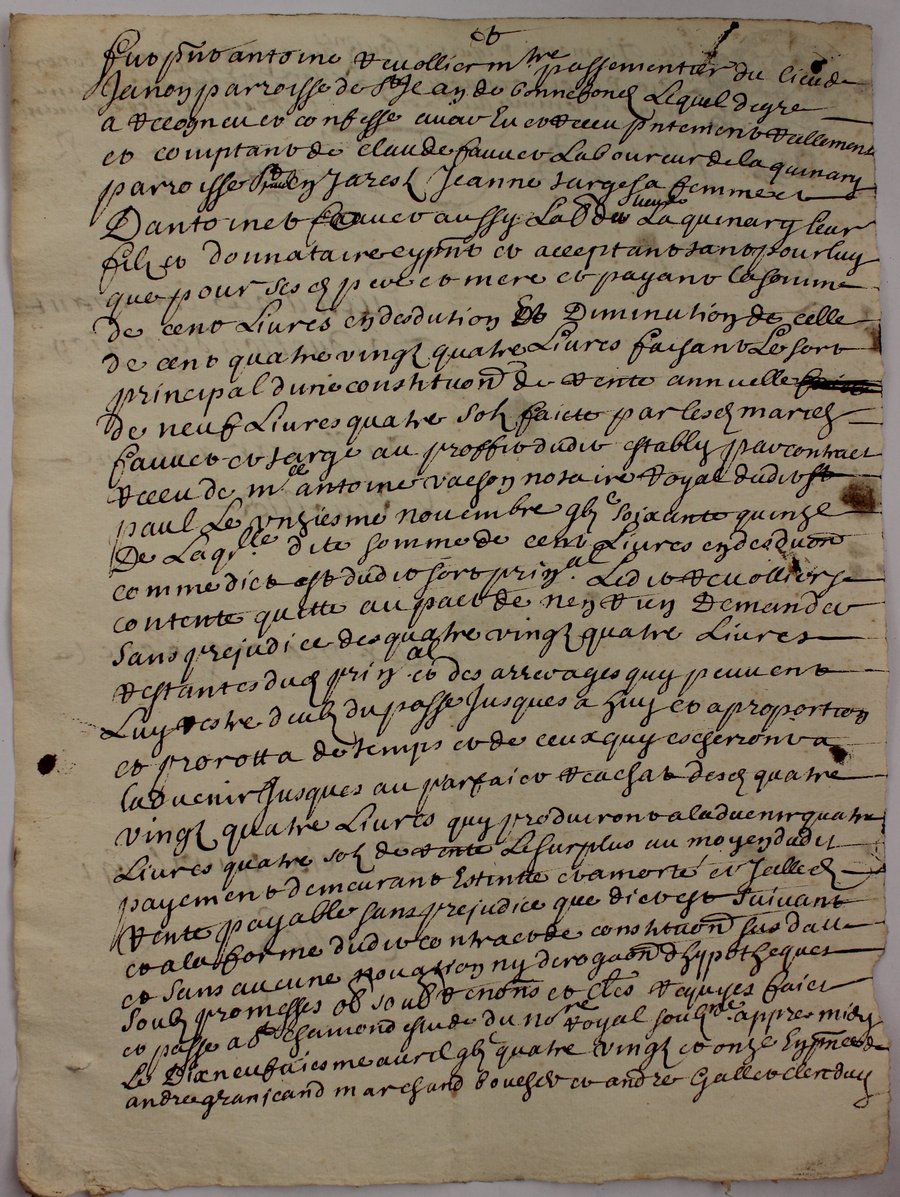 et
fut pnt antoine Revollier mtre passementier du lieu de
Janon parroisse de St Jean de bonnefond Lequel de gre
a Recogneu et confesse avoir Eu et Receu pntement Reallement
et comptant de claude fauvet Laboureur de la quinary
parroisse St paul en Jarest Jeanne large sa femme et
Dantoine fauvet aussy Labr du La quinary leur
filz et donnataire cy pnt et acceptant tant pour luy
que pour ses d pere et mere et payant la somme
de cent Livres en desdution Et Diminution de celle
de cent quatre vingt quatre Livres faisant Le sort
principal dune constituon de Rente annuelle
de neuf Livres quatre solz faicte par lesd mariez
fauvet et large au proffit dudit estably par contract
Receu de me antoine vachon notaire Royal dudit st
paul Le unziesme novembre gbc soixante quinze
De Laqlle dite somme de cent Livres en desduon
comme dict est dudit sort prinal. Ledit Revollier se
contente quitte au pact de nen Rien Demander
sans prejudice des quatre vingt quatre Livres
Restantes dud prinal. et des arrerages quy peuvent
Luy estre deubz du passe Jusques a huy et a proportion
et prorotta de temps et de ceux quy escherront a
ladvenir Jusques au parfaict Reachat desd quatre
vingt quatre Livres quy produiront a ladvenir quatre
Livres quatre solz de Rente Le surplus au moyen dudit
payement demeurant Estintte et amortie et Jcelled
Rente payable sans prejudice que dict est suivant
et a la forme dudit contract de constituon susdatte
et sans aucune novation ny derogaon dhypotheques
soubz promesses ob soub Renons et cles Requises faict
et passe a St chamond estude du nore Royal soubzne. appres midy
Le Dixneufviesme avril gbc quatre vingt et onze En pnce de
andre granjeand marchand boucher et andre Gallet clerc duy